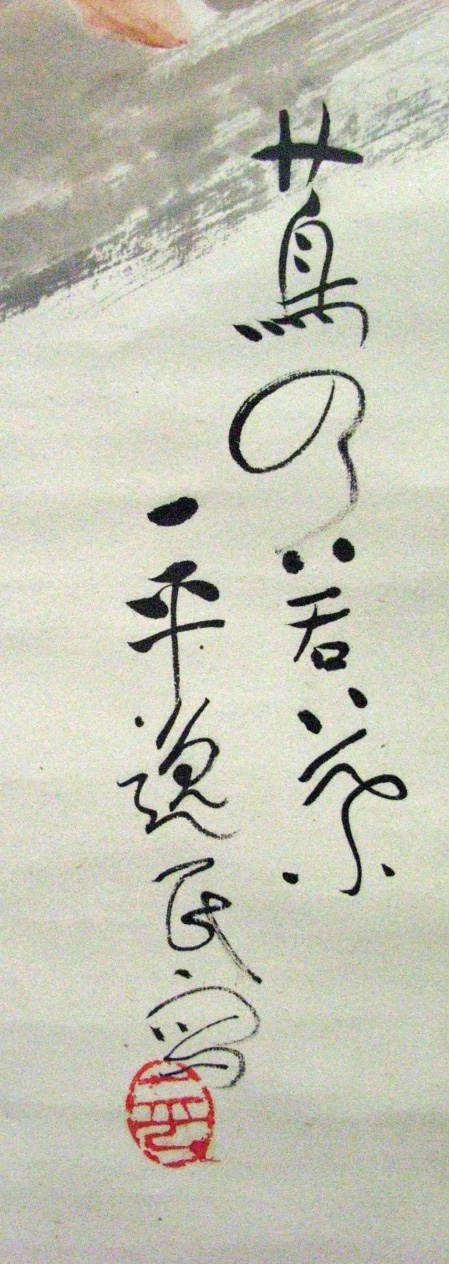 蔦の若葉
一平逸民写